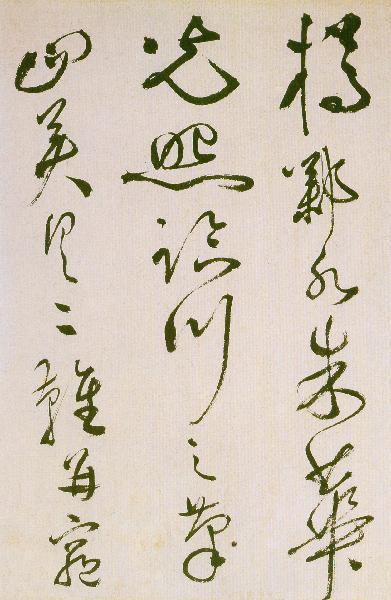 樽鄴水朱華
光照臨川之筆
四美具二難并窮